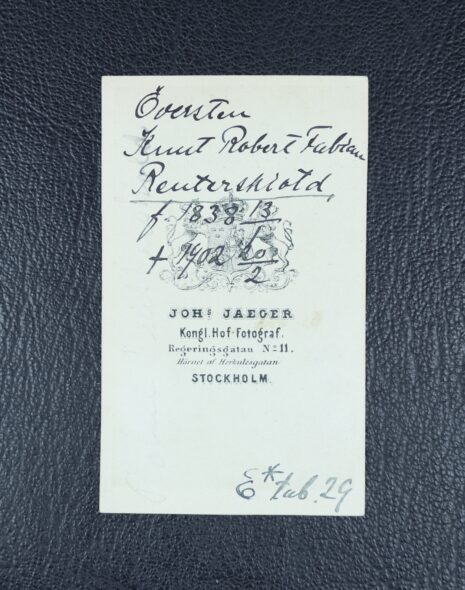 Översten
Knut Robert Fabian
Reuterskiöld
f 1838 13/1
+ 1902 20/2
JOHS JAEGER
Kongl. Hof-Fotograf.
Regeringsgatan No 11.
Hörnet af Herkulesgatan
STOCKHOLM.
E* tab. 29